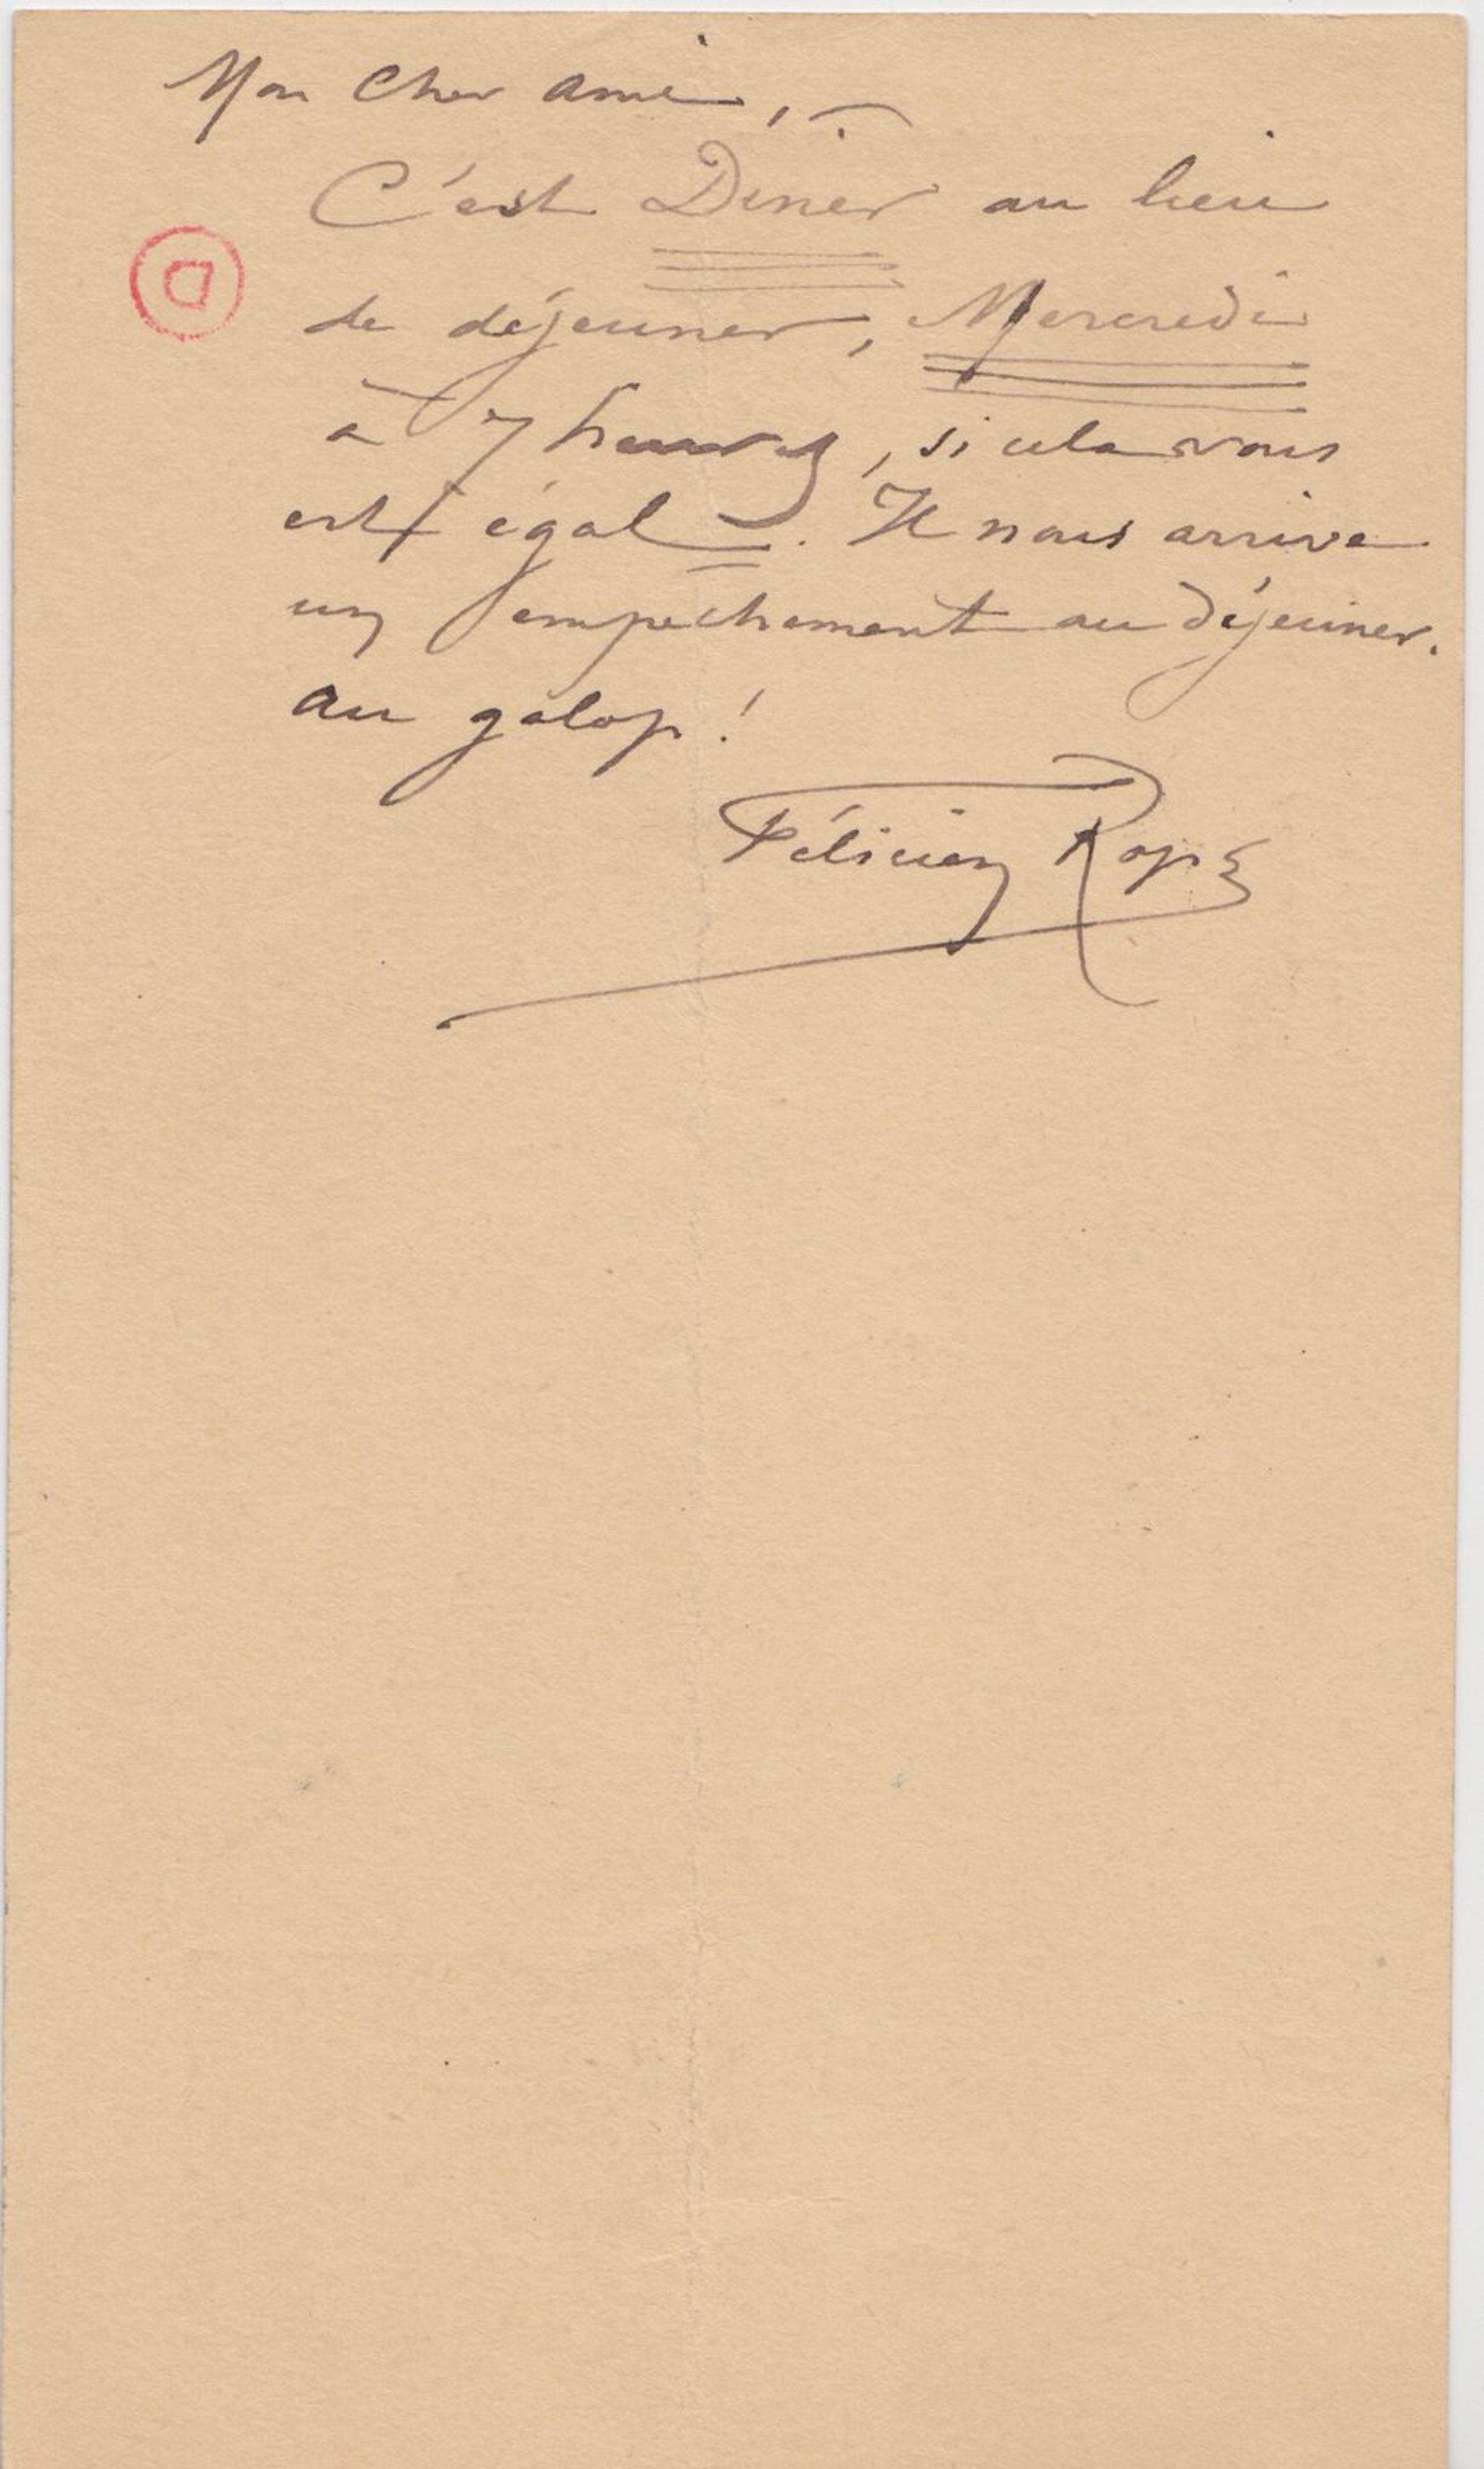 Mon Cher ami, —
C'est Diner au lieu
de déjeuner, Mercredi
à 7 heures, si cela vous
est égal. Il nous arrive
un empechement au déjeuner.
au galop !
Félicien Rops